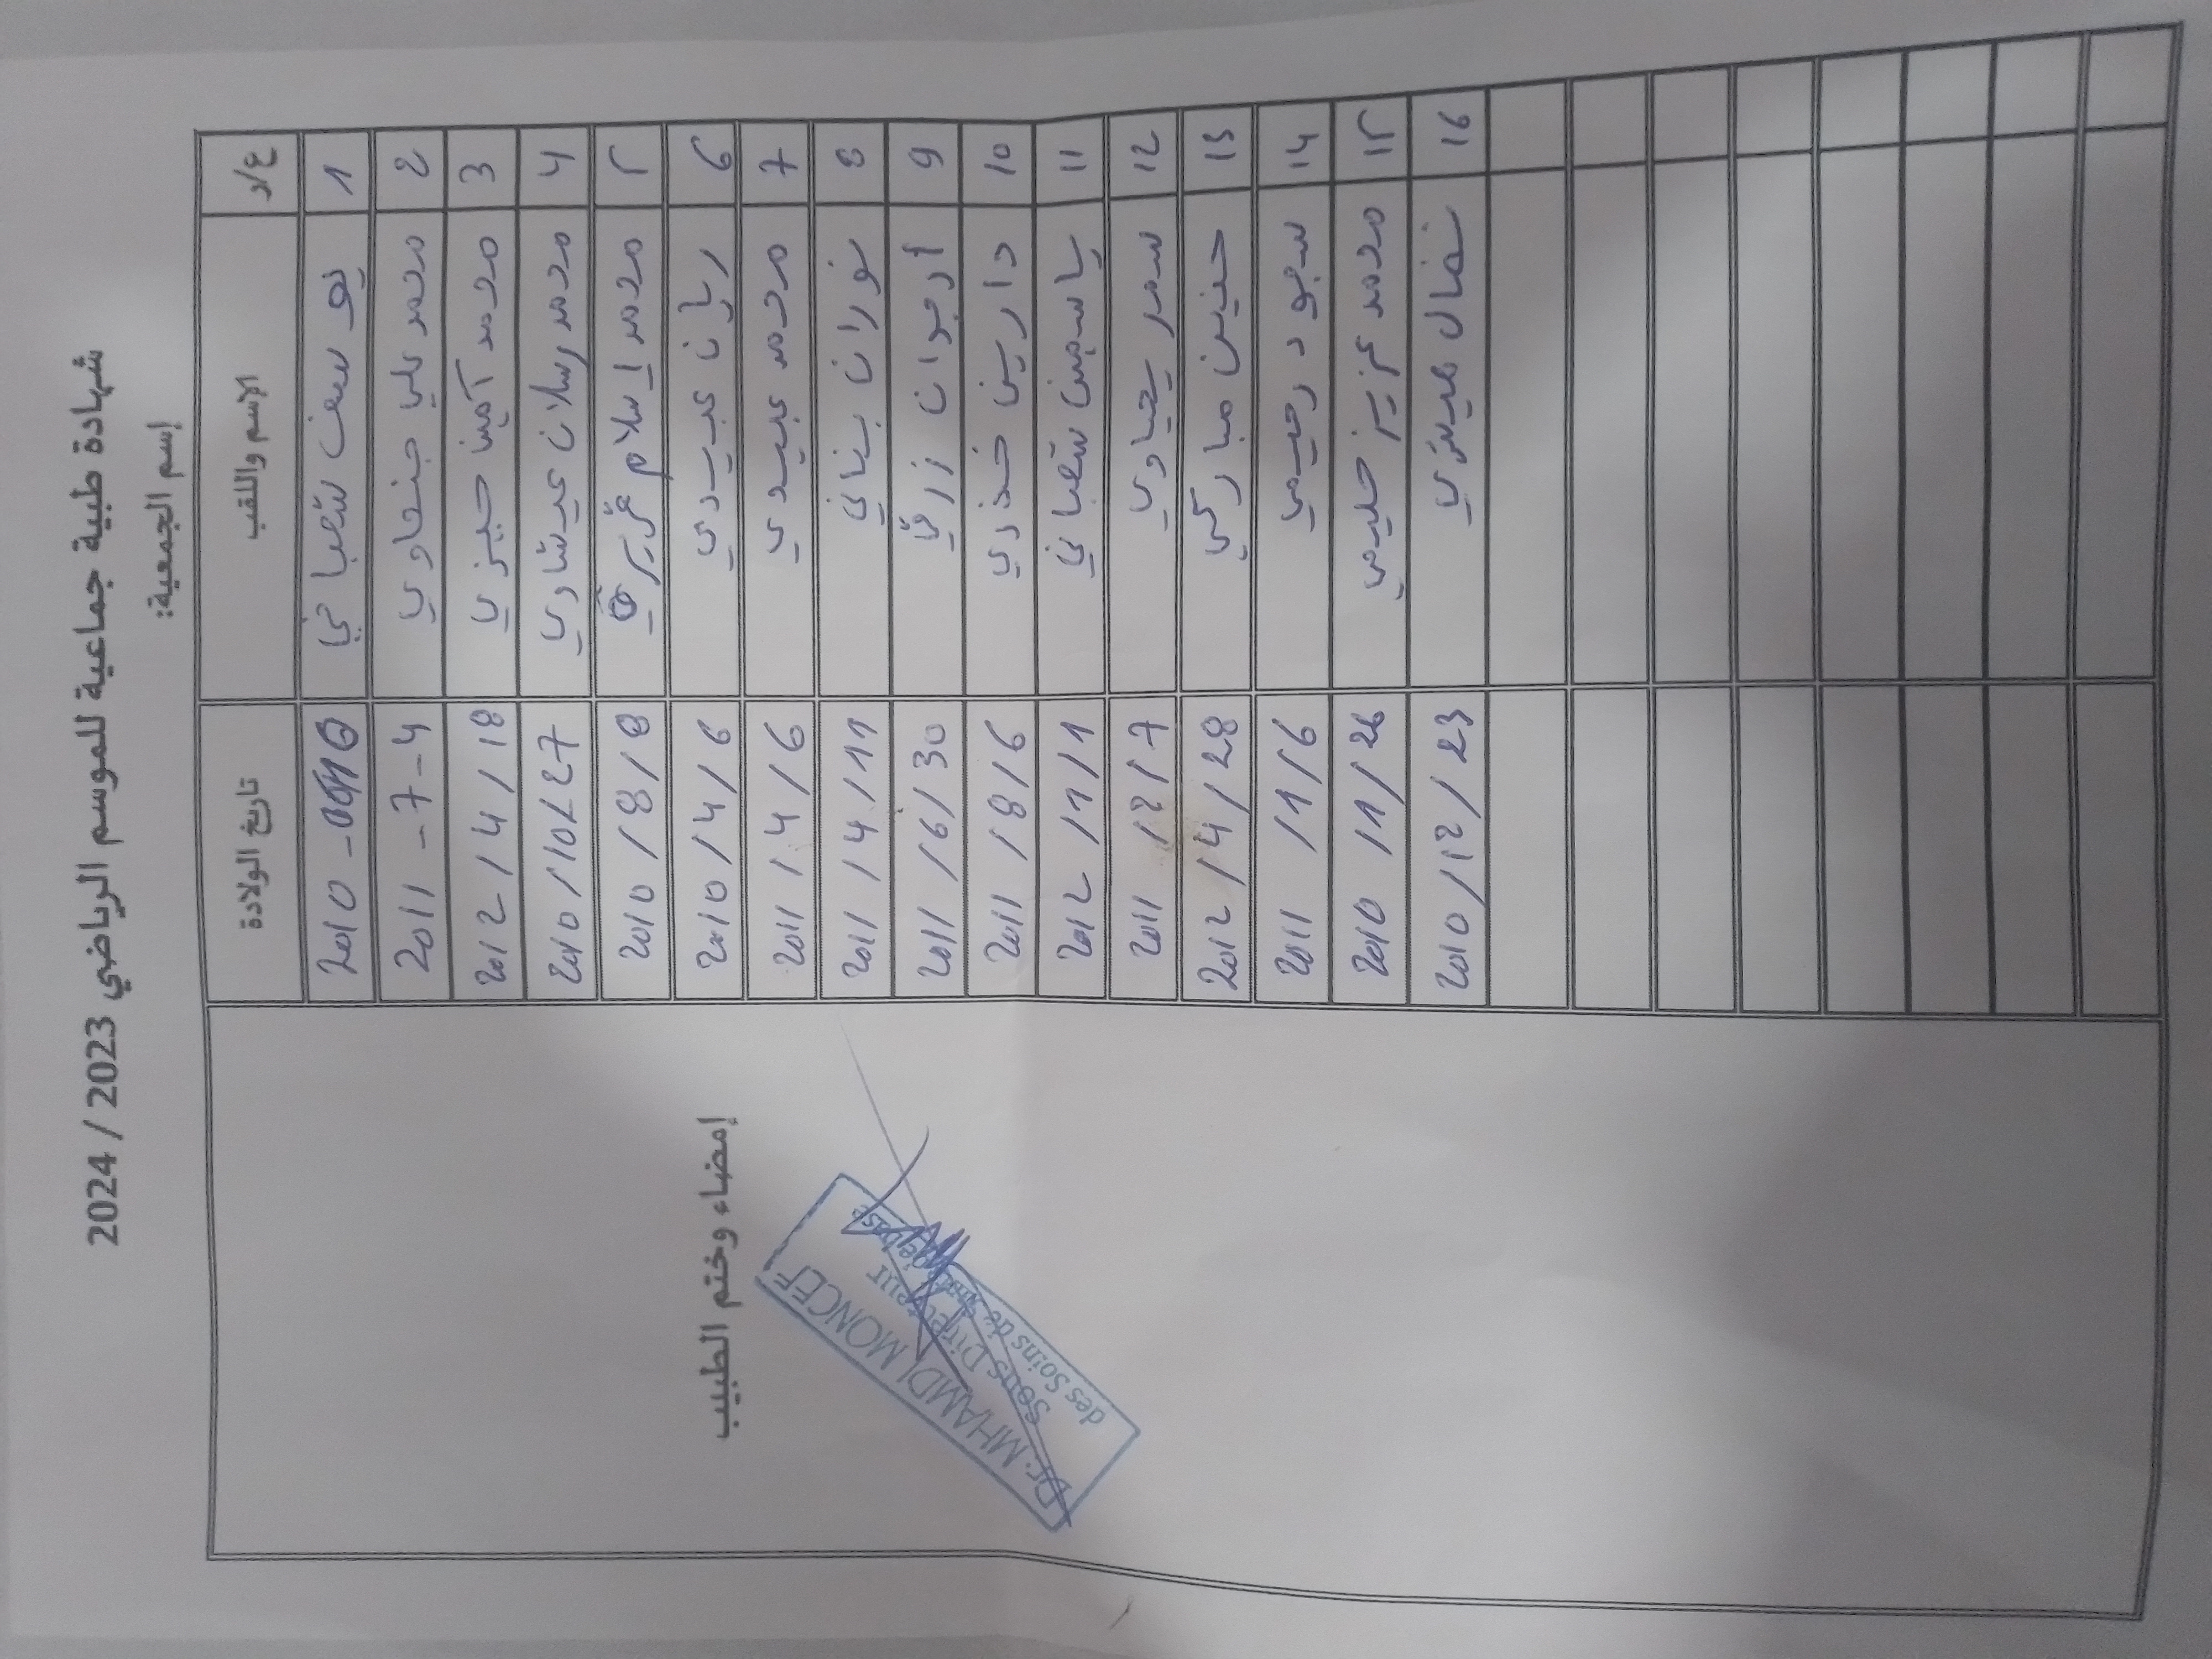 شهادة طبية جماعية للموسم الرياضي 2023 / 2024
إسم الجمعية:
ع/د الإسم واللقب تاريخ الولادة
1 يوسف شعباني 2010 -
2 محمد علي جنحاوي 2011 -7-4
3 محمد أمين حيزي 2012 / 4 / 18
4 محمد رسلان عيشاوي 2010 / 10 / 27
5 محمد إسلام 2010 / 8 / 8
6 ريان عبيدي 2010 / 4 / 6
7 محمد عبيدي 2011 / 4 / 6
8 نوران بناني 2011 / 4 / 11
9 أرجوان زرقي 2011 / 6 / 30
10 دارين خذري 2011 / 8 / 6
11 ياسمين شعباني 2012 / 1 / 1
12 سمر يحياوي 2011 / 2 / 7
13 حنين مباركي 2012 / 4 / 28
14 سجود رحيمي 2011 / 1 / 6
15 محمد عزيز حليمي 2010 / 1 / 26
16 نضال 2010 / 12 / 23
إمضاء وختم الطبيب
Dr. MHAMDI MONCEF
Sous Directeur
des Soins de Santé de base